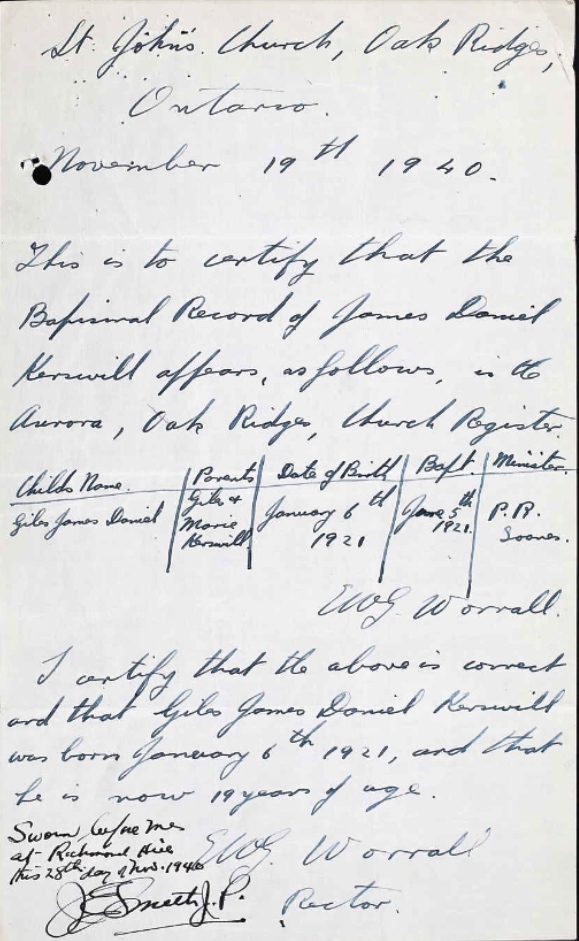 St. John's Church, Oak Ridges,
Ontario.
November 19th 1940.
This is to certify that the
Baptismal Record of James Daniel
Kerswill appears, as follows, in the
Aurora, Oak Ridges, Church Register.
Childs Name. | Parents | Date of Birth | Bapt. | Minister.
Giles James Daniel | Giles & Marie Kerswill. | January 6th 1921 | June 5th 1921. | P. R. Soanes.
EWG. Worrall.
I certify that the above is correct
and that Giles James Daniel Kerswill
was born January 6th 1921, and that
he is now 19 years of age.
Sworn before me
at Richmond Hill
this 28th day of Nov. 1940
EWG. Worrall
Rector.
J E Smith J.P.